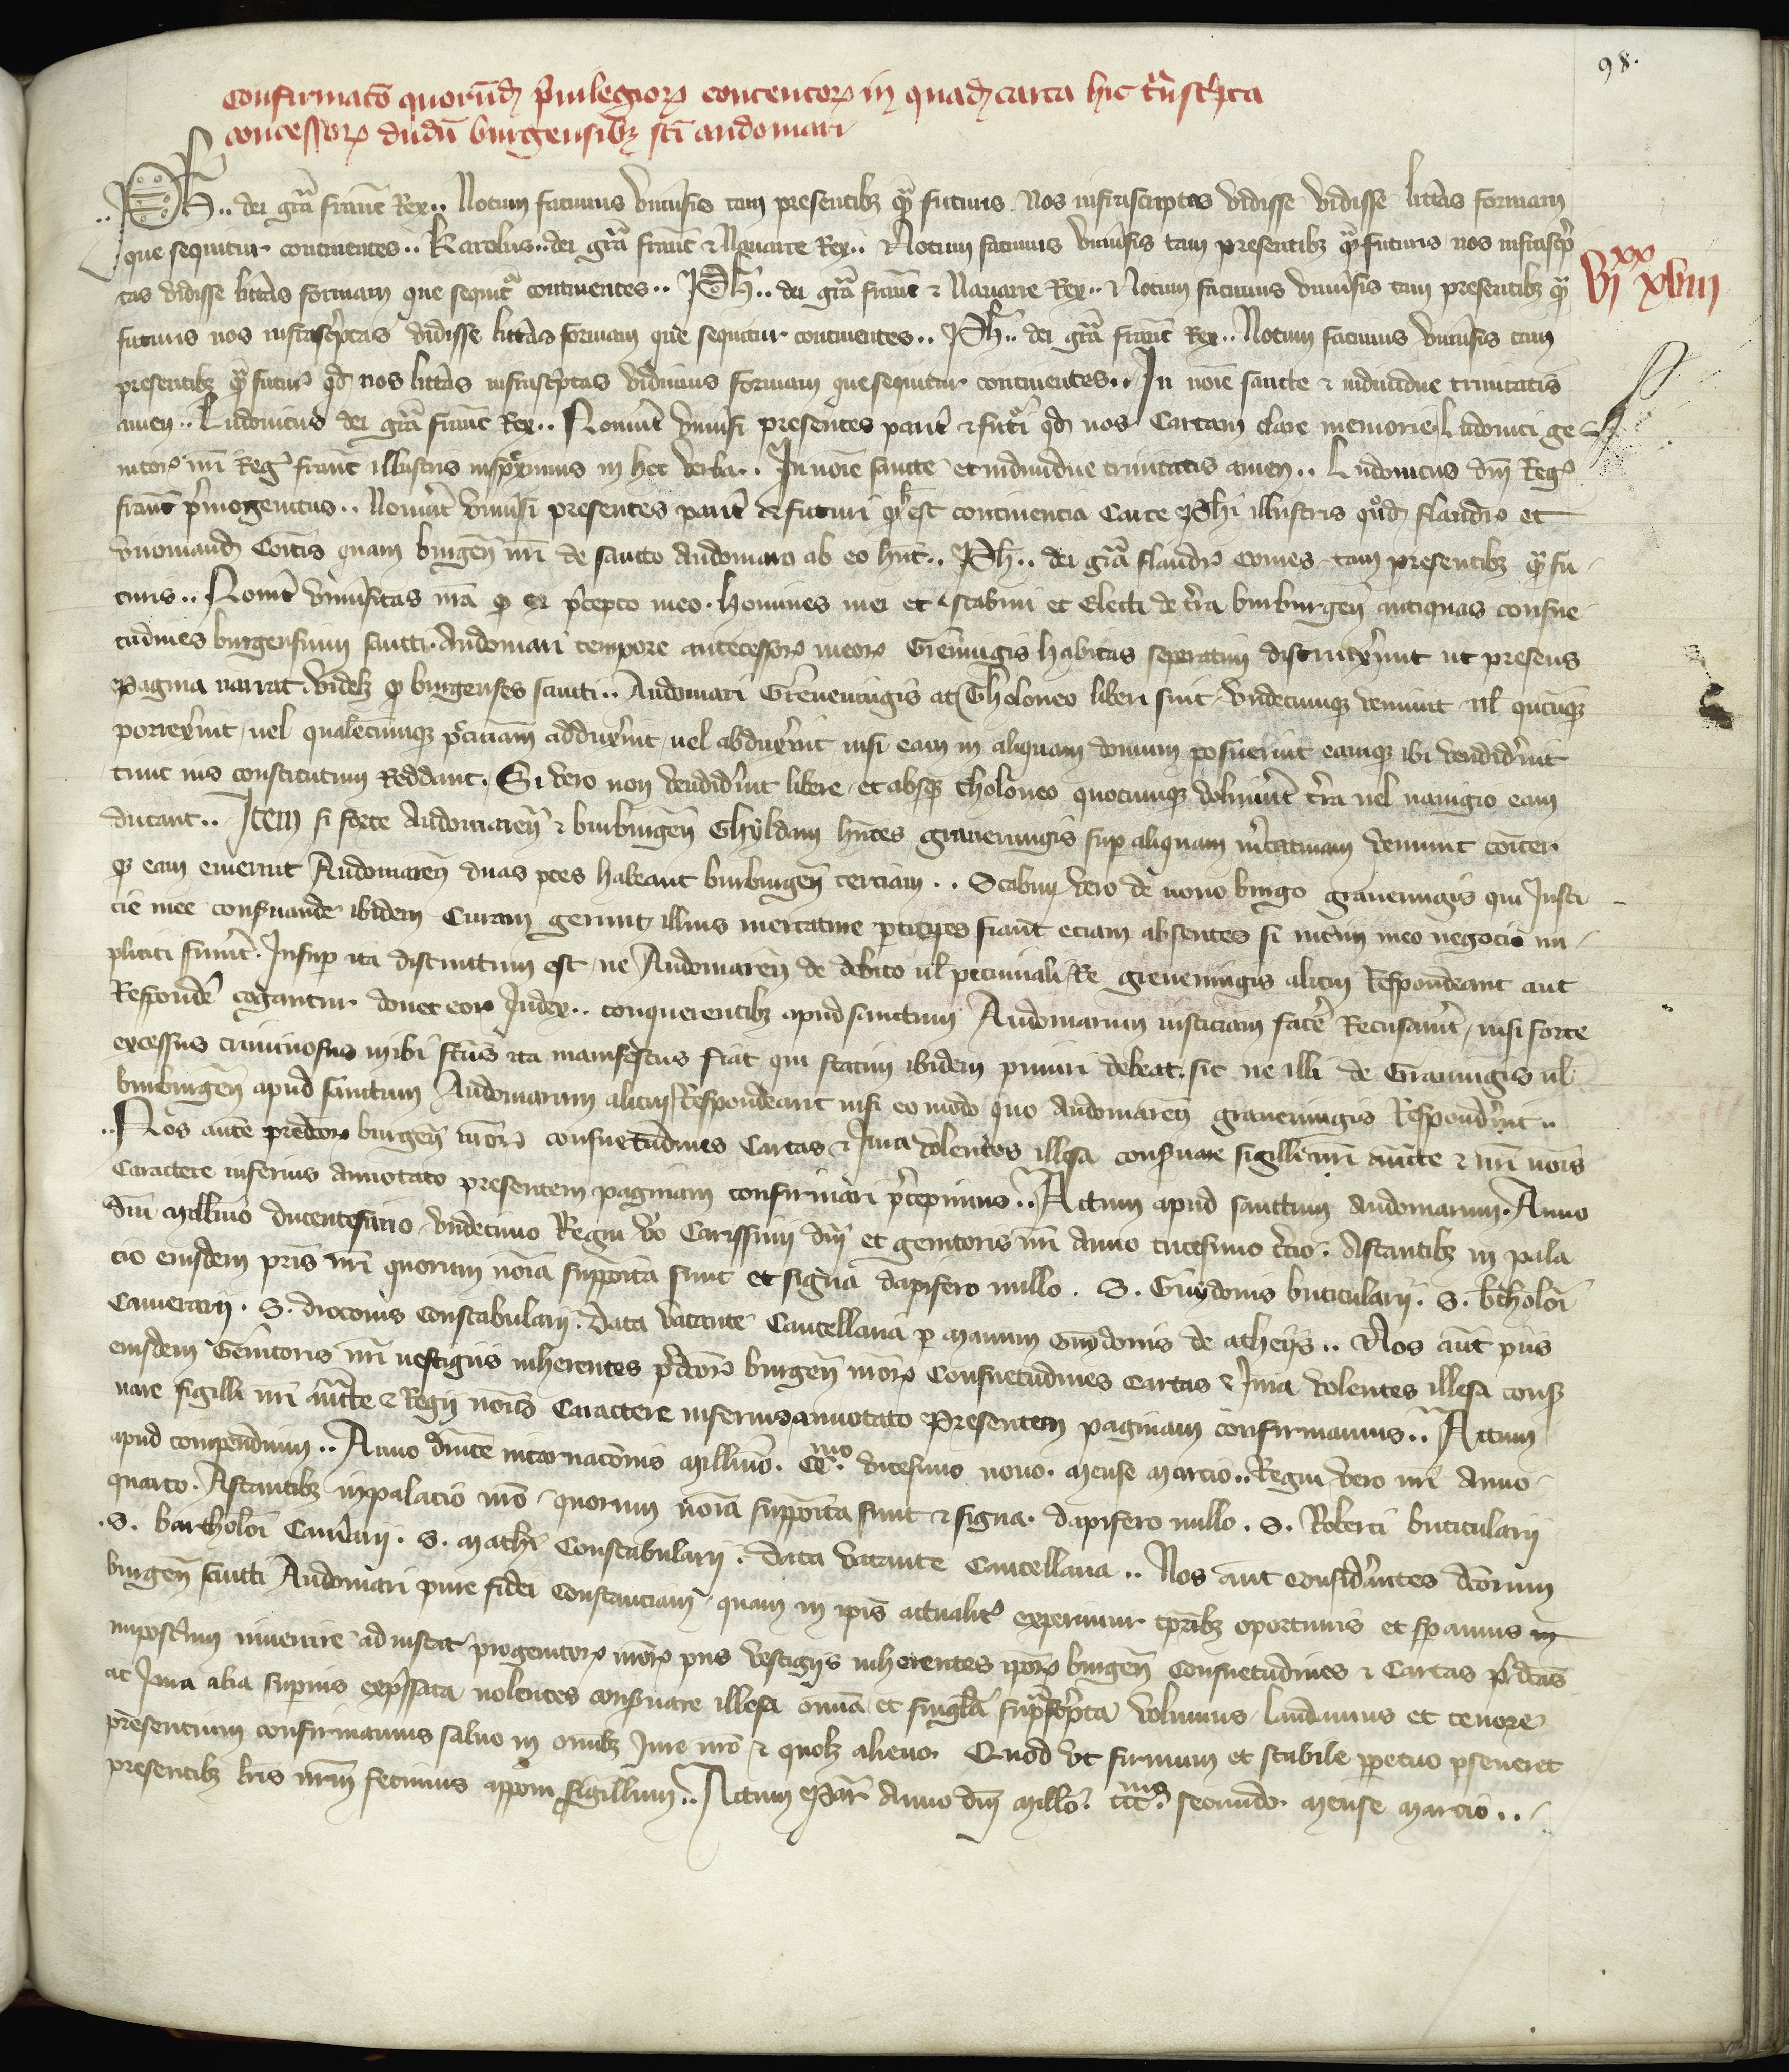 98.
Confirmatō quorūdꝫ p̄uilegioꝝ contentoꝝ in quadꝫ carta hic t̄nsc̄pta
concessoꝝ dudū burgensibꝫ sc̄i audomari
Ph̄.. dei gr̄a franc̄ Rex.. Notum facimus vniūsis tam presentibꝫ qͣ̄ futuris Nos infrascriptas vidisse vidisse litt̄as formam
que sequitur continentes.. Karolus.. dei gr̄a franc̄ ⁊ Nauarre Rex.. Notum facimus vniūsis tam presentibꝫ qͣ̄ futuris nos infrasc̄p
tas vidisse litt̄as formam que sequit̄ continentes.. Ph̄.. dei gr̄a franc̄ ⁊ Nauarre Rex.. Notum facimus vniūsis tam presentibꝫ qͣ̄
vi xx xviii
futuris nos infrasc̄ptas vidisse litt̄as formam que sequitur continentes.. Ph̄.. dei gr̄a franc̄ Rex.. Notum facimus vniūsis tam
presentibꝫ qͣ̄ futur̄ qd̄ nos litt̄as infrasc̄ptas vidimus formam que sequitur continentes.. In noīe sancte ⁊ indiuidue trinitatis
amen.. Ludouicus dei gr̄a franc̄ Rex.. Nouint̄ vniūsi presentes parit̄ ⁊ fut̄i qd̄ nos Cartam clare memorie Ludouici ge
nitoꝝ nr̄i Reḡ franc̄ illustris inspeximus in hec verba.. In noīe sancte et indiuidue trinitatis amen.. Ludouicus dn̄i Reḡ
franc̄ p̄mogenitus.. Nouint̄ vniūsi presentes parit̄ ⁊ futuri qd̄ hec est continencia Carte Ph̄i illustris quōdꝫ flandr̄ et
viromandꝫ Comitis quam burgeñ nr̄i de sancto Audomaro ab eo hn̄t.. Ph̄.. dei gr̄a flandr̄ comes tam presentibꝫ qͣ̄ fu
turis.. Nouit̄ vniūsitas vr̄a qd̄ ex p̄cepto meo homines mei et scabini et Electi de t̄ra burburgeñ antiquas consue
tudines burgensium sancti Audomari tempore antecessoꝝ meoꝝ Greuenigis habitas seperatim distinxerunt ut presens
pagina narrat videlꝫ qd̄ burgenses sancti.. Audomari Greueningis ac Tholoneo liberi sint vndecumqꝫ veniunt ul̄ quicūqꝫ
porrexerint uel qualecumqꝫ p̄ciniam adduxerint uel abduxerint nisi eam in aliquam domum posuerint eamqꝫ ibi vendiderint
tunc ius constitutum Reddant. Si vero non vendiderint libere et absqꝫ tholoneo quocumqꝫ voluerint t̄ra uel nauigio eam
ducant.. Item si forte Audomareñ ⁊ burburgeñ Ghyldam hn̄tes graueningis sup aliquam m̄catutam veniunt cōiter
qꝫ eam emerint Audomareñ duas ptes habeant burburgeñ terciam.. Scabini vero de nouo burgo grauenigis qui Justi
cie mee conseruande ibidem Curam gerunt illius mercature pticipes fiant eciam absentes si int̄im meo negocio im
pliciti fuerint. Insup ita distinctum est ne Audomareñ de debito ul̄ pecuniali Re greueningis alicui Respondeant aut
Respondē cogantur donec eoꝝ Judex.. conquerentibꝫ apud sanctum Audomarum iusticiam facē Recusauerit nisi forte
excessus criminosus in ibi fcūs ita manifestus fiat qui statim ibidem puniri debeat. sic ne illi de Grauenigis ul̄
burburgeñ apud sanctum Audomarum alicui Respondeant nisi eo modo quo Audomareñ grauenigis Responderint..
Nos autē predc̄oꝝ burgeñ nr̄oꝝ consuetudines Cartas ⁊ Jura volentes illesa conseruare sigilli nr̄i auct̄te ⁊ nr̄i noīs
Caractere inferius annotato presentem paginam confirmari p̄cepimus.. Actum apud sanctum Audomarum. Anno
dn̄i millīmo ducentesimo vndecimo Regni v̄o Carissimi dn̄i et genitoris nr̄i Anno tricesimo t̄cio. Astantibꝫ in pala
cio eiusdem pr̄is nr̄i quorum noīa supposita sunt et signa dapifero nullo. S. Guydonis buticularii. S. bartholōi
Camerarii. S. droconis Constabularii. Data vacante Cancellaria p manum Guydonis de atheys.. Nos aut̄ piis
eiusdem Genitoris nr̄i uestigiis inherentes p̄dc̄oꝝ burgeñ nr̄oꝝ Consuetudines Cartas ⁊ Jura volentes illesa consꝫ
uare sigilli nr̄i auct̄te ⁊ Regii noīs Caractere inferius annotato Presentem paginam confirmamus.. Actum
apud compendium.. Anno dn̄ice incarnacōnis millīmo. CCmo. vicesimo nono. mense marcio.. Regni vero nr̄i Anno
quarto. Astantibꝫ in palacio nr̄o quorum noīa supposita sunt ⁊ signa. dapifero nullo. S. Roberti buticularii
.S. bartholōi Camerarii. S. mathī Constabularii. Data vacante Cancellaria.. Nos aut̄ considerantes dc̄orum
burgeñ sancti Audomari pure fidei Constanciam quam in ip̄is actualit̄ experimur tp̄ribꝫ oportunis et speramus in
imposterum inuenire ad instar progenitoꝝ nr̄oꝝ piis vestigiis inherentes ip̄oꝝ burgeñ Consuetudines ⁊ Cartas p̄dc̄as
ac Jura alia supius exp̄ssata uolentes conseruare illesa omnia et singl̄a sup̄sc̄pta volumus laudamus et tenore
presentium confirmamus saluo in omibꝫ Jure nr̄o ⁊ quolꝫ alieno. Quod vt firmum et stabile ppetuo pseueret
presentibꝫ lr̄is nr̄um fecimus appōni sigillum.. Actum par̄ Anno dn̄i millo. cccmo. secundo. mense marcio..